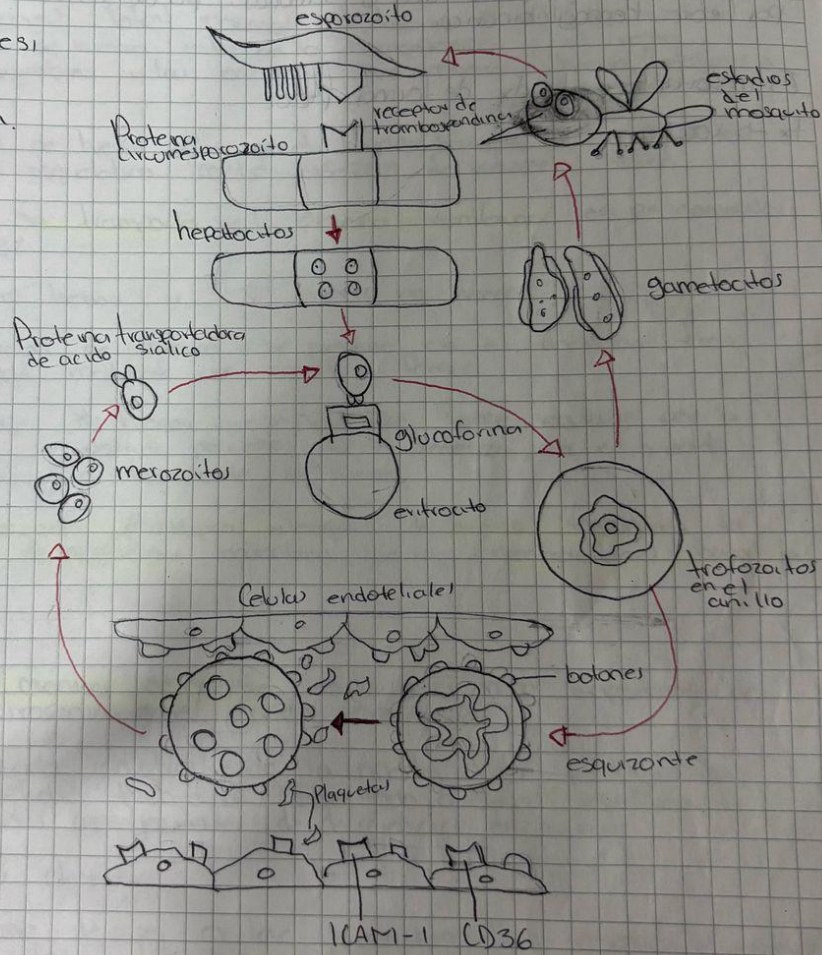 es,
esporozoito
estadios
del
mosquito
receptor de
trombospondina
Proteina
circumesporozoito
hepatocitos
gametocitos
Proteina transportadora
de acido sialico
glucoforina
merozoitos
eritrocito
trofozoitos
en el
anillo
Celulas endoteliales
botones
esquizonte
Plaquetas
ICAM-1 CD36